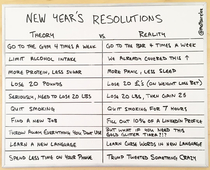 NEW YEAR'S RESOLUTIONS
THEORY VS REALITY
GO TO THE GYM 4 TIMES A WEEK
GO TO THE BAR 4 TIMES A WEEK
LIMIT ALCOHOL INTAKE
WE ALREADY COVERED THIS ↑
MORE PROTEIN, LESS SUGAR
MORE PANIC, LESS SLEEP
LOSE 20 POUNDS
LOSE 20 £'S (ON WEIGHT LOSS BET)
SERIOUSLY, NEED TO LOSE 20 LBS
LOSE 20 LBS, THEN GAIN 25
QUIT SMOKING
QUIT SMOKING FOR 7 HOURS
FIND A NEW JOB
FILL OUT 10% OF A LINKEDIN PROFILE
THROW AWAY EVERYTHING YOU DON'T USE
BUT WHAT IF YOU NEED THIS
GOLD GLITTER
LEARN A NEW LANGUAGE
LEARN CURSE WORDS IN NEW LANGUAGE
SPEND LESS TIME ON YOUR PHONE
TRUMP TWEETED SOMETHING CRAZY